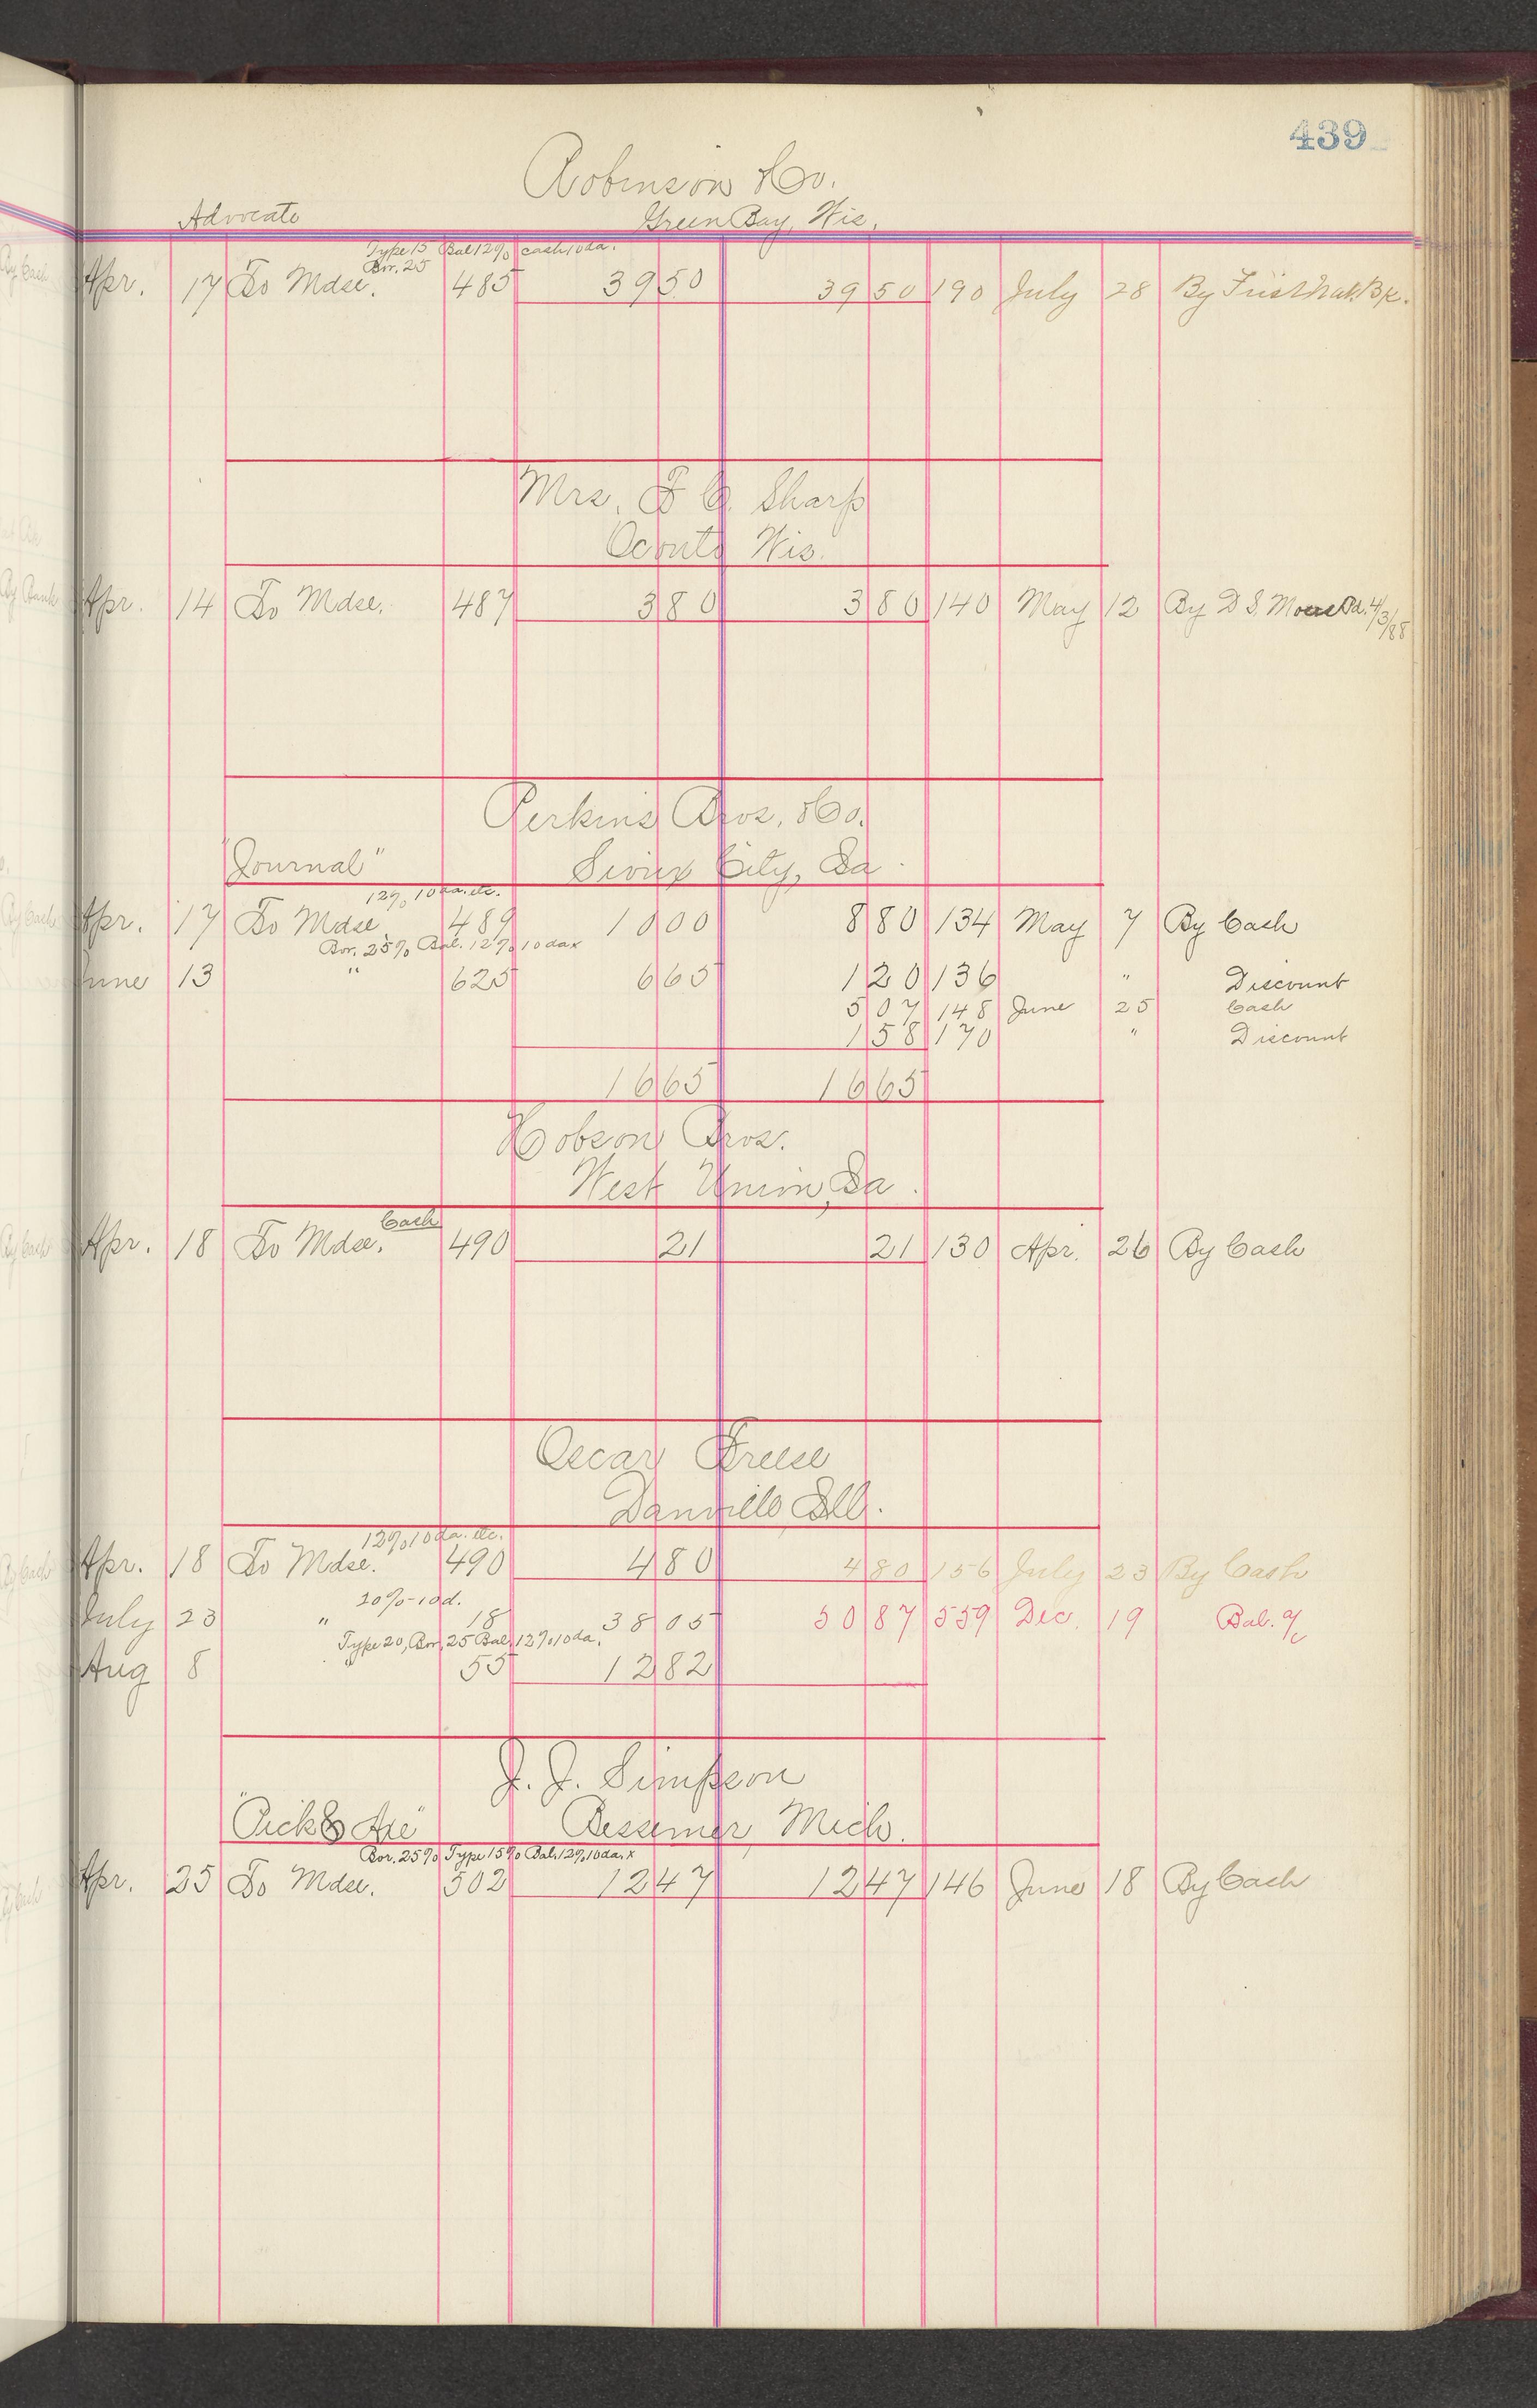 439
Robinson & Co.
Advocate Green Bay, Wis.
Type 15 Bal 12% cash 10 da.
Bor. 25
Apr. 17 To Mdse. 485 39 50 39 50 190 July 28 By First Nat. Bk.
Mrs. F C. Sharp
Oconto Wis.
Apr. 14 To Mdse. 487 3 80 3 80 140 May 12 By D S. Moree Pd. 4/3/88
Perkins Bros. & Co.
"Journal" Sioux City, Ia.
12% 10 da. etc.
Apr. 17 To Mdse. 489 10 00 8 80 134 May 7 By Cash
Bor. 25% Bal. 12% 10 da x
June 13 " 625 6 65 1 20 136 " Discount
5 07 148 June 25 Cash
1 58 170 " Discount
16 65 16 65
Hobson Bros.
West Union, Ia.
Cash
Apr. 18 To Mdse. 490 21 21 130 Apr. 26 By Cash
Oscar Freese
Danville Ill.
12% 10 da. etc.
Apr. 18 To Mdse. 490 4 80 4 80 156 July 23 By Cash
20%-10d.
July 23 " 18 38 05 50 87 559 Dec. 19 Bal. a/c
Type 20, Bor. 25 Bal. 12% 10 da.
Aug 8 " 55 12 82
J. J. Simpson
"Pick & Axe" Bessemer, Mich.
Bor. 25% Type 15% Bal. 12% 10 da. x
Apr. 25 To Mdse. 502 12 47 12 47 146 June 18 By Cash